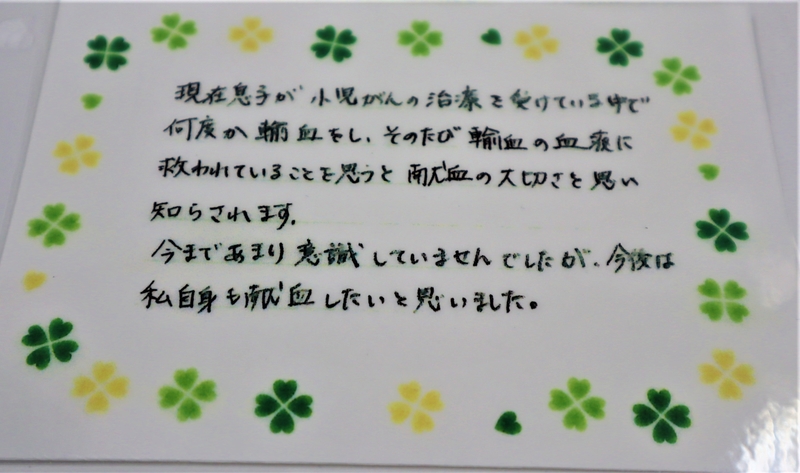 現在息子が小児がんの治療を受けている中で
何度か輸血をし、そのたび輸血の血液に
救われていることを思うと献血の大切さを思い
知らされます。
今まであまり意識していませんでしたが、今後は
私自身も献血したいと思いました。